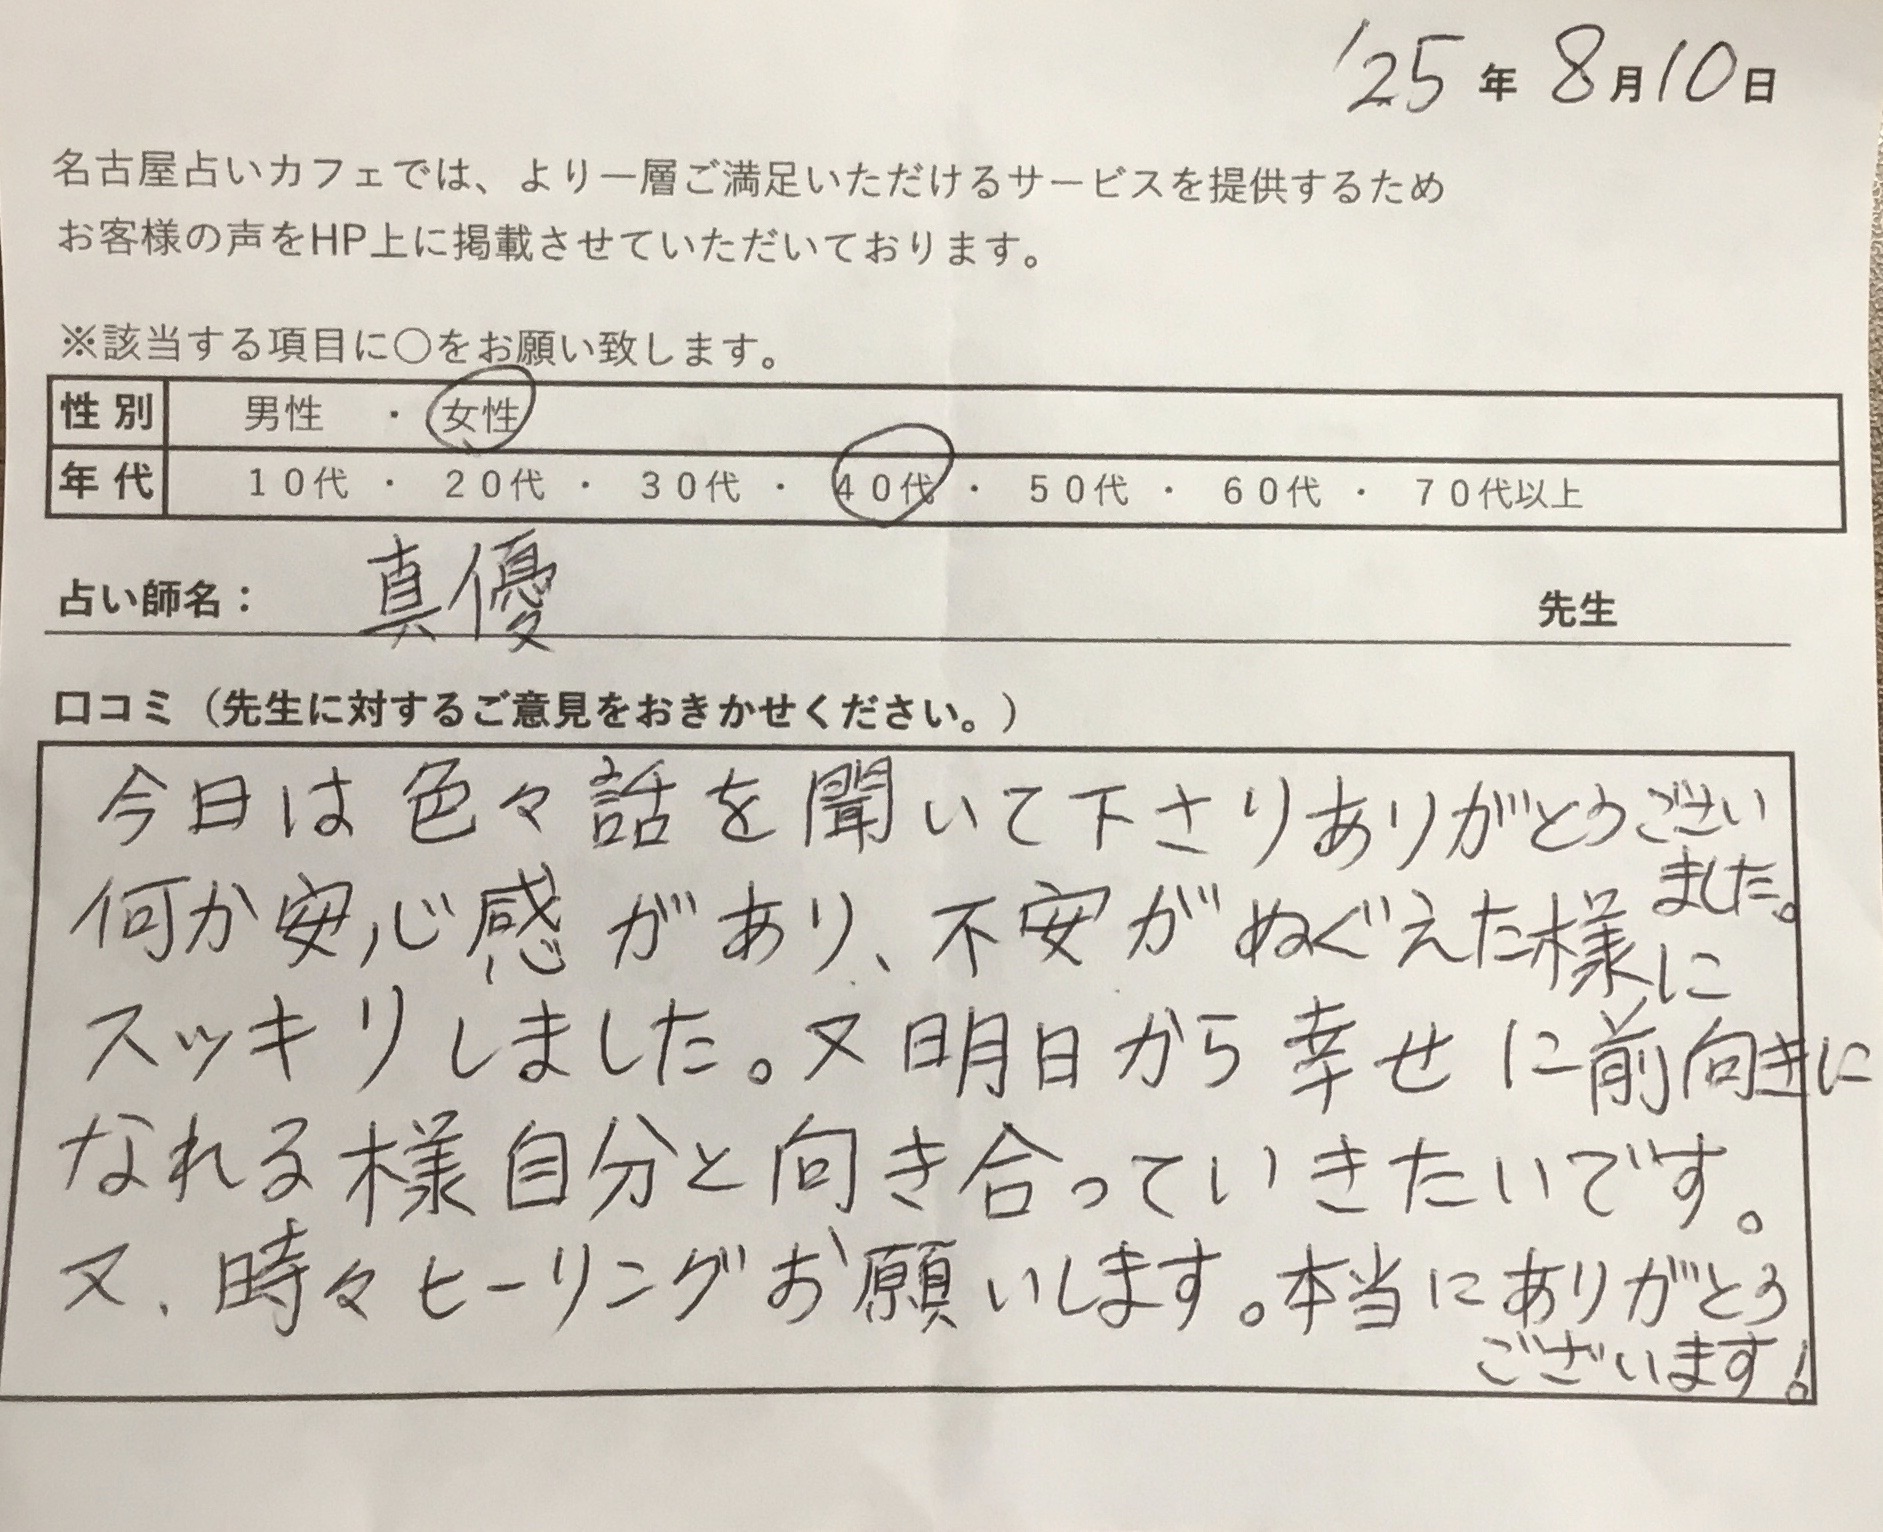 '25年 8月10日
名古屋占いカフェでは、より一層ご満足いただけるサービスを提供するため
お客様の声をHP上に掲載させていただいております。
※該当する項目に〇をお願い致します。
性別 男性 ・ 女性
年代 10代 ・ 20代 ・ 30代 ・ 40代 ・ 50代 ・ 60代 ・ 70代以上
占い師名： 真優 先生
口コミ（先生に対するご意見をおきかせください。）
今日は色々話を聞いて下さりありがとうござい
ました。
何か安心感があり、不安がぬぐえた様に
スッキリしました。又明日から幸せに前向きに
なれる様自分と向き合っていきたいです。
又、時々ヒーリングお願いします。本当にありがとう
ございます!